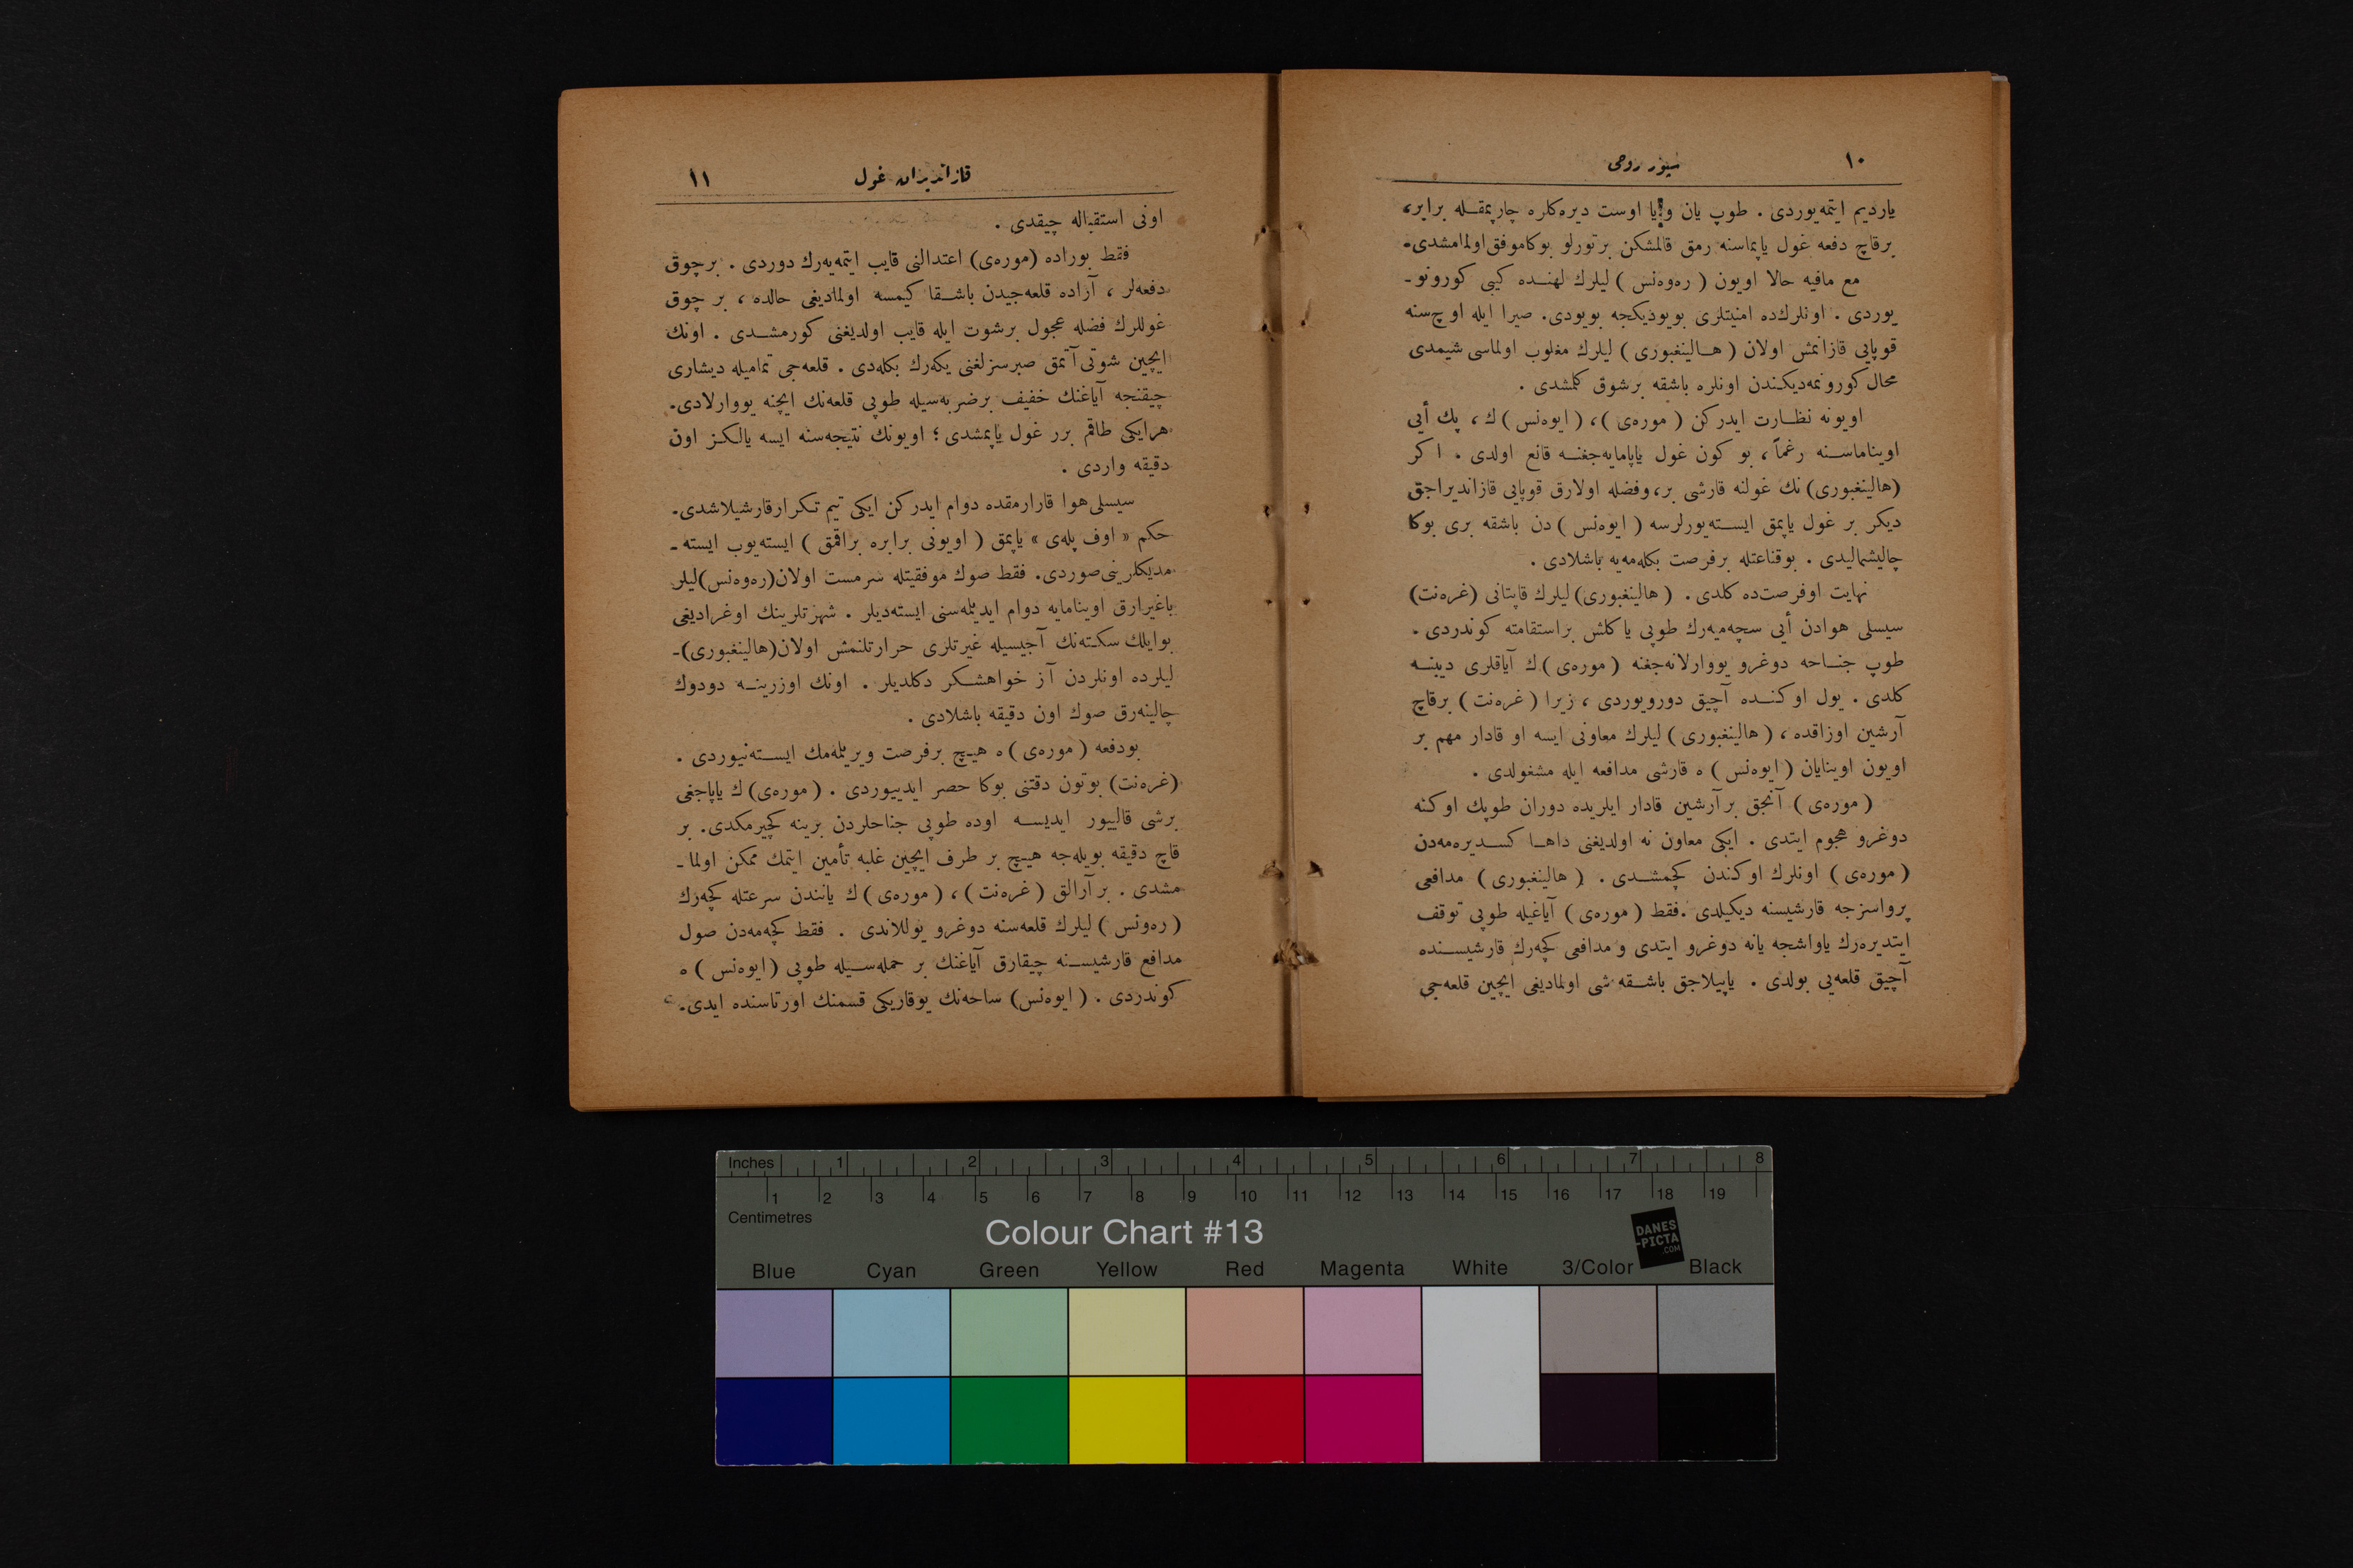 ١٠
سپور روحی
یاردیم ایتمه‌یوردی . طوپ یان ویا اوست دیره‌کلره چارپمقـله برابر،
برقاچ دفعه غول یاپماسنه رمق قالمشکن برتورلو بوکاموفق‌اولمامشدی.
مع مافیه حالا اویون ( ره‌وه‌نس ) لیلرك لهنـده کیبی کورونو-
یوردی . اونلرك‌ده امنیتلری بویودیکجه بویودی. صیرا ایله اوچ‌سنه
قوپایی قازانمش اولان ( هـالینغبوری ) لیلرك مغلوب اولماسی شیمدی
محال‌کورونمه‌دیکندن اونلره باشقه برشوق کلمشدی .
اویونه نظـارت ایدرکن ( موره‌ی )، ( ایوه‌نس ) ك، پك أیی
اویناماسـنه رغماً، بو کون غول یاپامایه‌جغنـه قانع اولدی . ا کر
(هالینغبوری) نك غولنه قارشی بر، وفضله اولارق قوپایی قازاندیراجق
دیکر بر غول یاپمق ایسـته‌یورلرسه ( ایوه‌نس ) دن باشقه بری بوکا
چالیشمالیدی . بوقناعتله برفرصت بکله‌مه‌یه باشلادی .
نهایت اوفرصت‌ده کلدی . ( هالینغبوری) لیلرك قاپتانی (غره‌نت)
سیسلی هوادن أیی سچه‌میه‌رك طوپی یاکلش براستقامته کوندردی .
طوپ جنـاحه دوغرو یووارلانه‌جغنه ( موره‌ی ) ك آیاقلری دیبنـه
کلدی . یول اوکنـده آچیق دورویوردی ، زیرا ( غره‌نت ) برقاچ
آرشین اوزاقده، ( هالینغبوری ) لیلرك معاونی ایسه او قادار مهم بر
اویون اوینایان ( ایوه‌نس ) ه قارشی مدافعه ایله مشغولدی .
( موره‌ی ) آنجق برآرشین قادار ایلریده دوران طوپك اوکنه
دوغرو هجوم ایتدی . ایکی معاون نه اولدیغنی داهـا کسـدیره‌مه‌دن
( موره‌ی ) اونلرك اوکندن کچمشـدی . ( هالینغبوری ) مدافعی
پرواسزجه قارشیسنه دیکیلدی .فقط ( موره‌ی ) آیاغیله طوپی توقف
ایتدیره‌رك یاواشجه یانه دوغرو ایتدی و مدافعی کچه‌رك قارشیسـنده
آچیق قلعه‌یی بولدی . یاپیلاجق باشـقه شی اولمادیغی ایچین قلعه‌جی
١١
قازاندیران غول
اونی استقباله چیقدی .
فقط بوراده (موره‌ی) اعتدالنی قایب ایتمه‌یه‌رك دوردی . برچوق
دفعه‌لر ، آراده قلعه‌جیدن باشـقا کیمسه اولمادیغی حالده ، بر چوق
غوللرك فضله عجول برشوت ایله قایب اولدیغنی کورمشـدی . اونك
ایچین شوتی آتمق صبرسزلغنی یکه‌رك بکله‌دی . قلعه‌جی تمامیله دیشاری
چیقنجه آیاغنك خفیف برضربه‌سیله طوپی قلعه‌نك ایچنه یووارلادی.
هرایکی طاقم برر غول یاپمشدی؛ اویونك نتیجه‌سنه ایسه یالکـز اون
دقیقه واردی .
سیسلی‌هوا قارارمقده دوام ایدرکن ایکی تیم تکرارقارشیلاشدی.
حکم « اوف پله‌ی » یاپمق ( اویونی برابره براقمق ) ایسته‌یوب ایسته-
مدیکلرینی‌صوردی. فقط صوك موفقیتله سرمست اولان(ره‌وه‌نس)لیلر
باغیرارق اوینامایه دوام ایدیلمه‌سنی ایسته‌دیلر . شهرتلرینك اوغرادیغی
بوایلك سکته‌نك آجیسیله غیرتلری حرارتلنمش اولان(هالینغبوری)-
لیلرده اونلردن آز خواهشـکر دکلدیلر . اونك اوزرینـه دودوك
چالینه‌رق صوك اون دقیقه باشلادی .
بودفعه ( موره‌ی ) ه هیـچ برفرصت ویریلمه‌مك ایسـته‌نیوردی .
(غره‌نت) بوتون دقتنی بوکا حصر ایدییوردی . ( موره‌ی) ك یاپاجغی
برشی قالییور ایدیسـه اوده طوپی جناحلردن برینه کچیرمکدی. بر
قاچ دقیقه بویله‌جه هیـچ بر طرف ایچین غلبه تأمین ایتمك ممکن اولما-
مشدی . برآرالق ( غره‌نت ) ، ( موره‌ی ) ك یانندن سرعتله کچه‌رك
( ره‌ونس ) لیلرك قلعه‌سنه دوغرو یوللاندی . فقط کچه‌مه‌دن صول
مدافع قارشیسـنه چیقارق آیاغنك بر حمله‌سـیله طوپی ( ایوه‌نس ) ه
کوندردی . ( ایوه‌نس) ساحه‌نك یوقاریکی قسمنك اورتاسنده ایدی.
Inches 1 2 3 4 5 6 7 8
1 2 3 4 5 6 7 8 9 10 11 12 13 14 15 16 17 18 19
Centimetres
Colour Chart #13
DANES
-PICTA
.COM
Blue Cyan Green Yellow Red Magenta White 3/Color Black